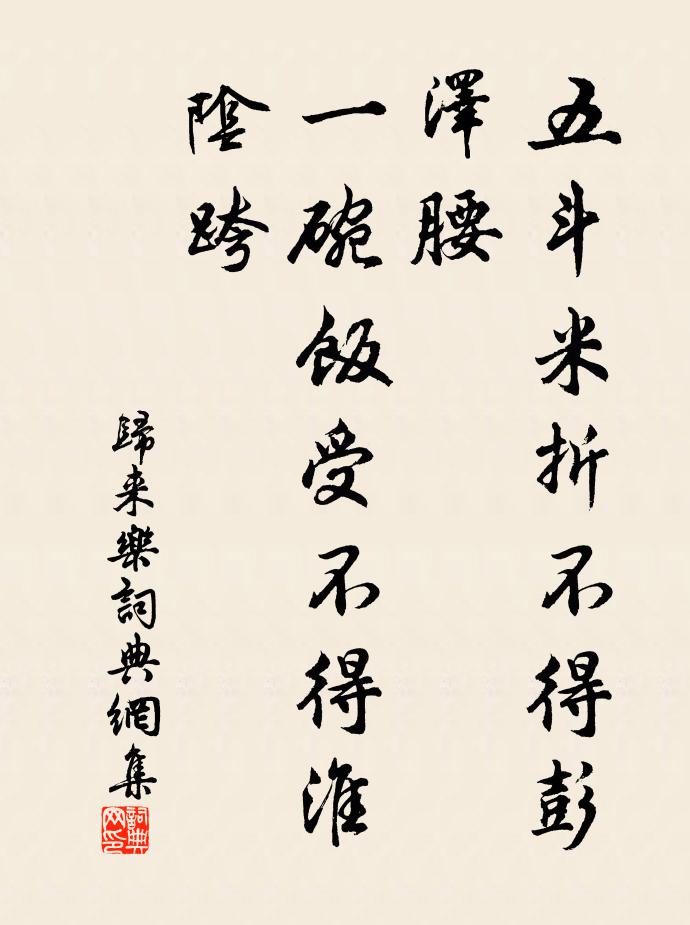 五斗米折不得彭
澤腰
一碗飯受不得淮
陰跨
歸来樂詞典網集
詞典
网印